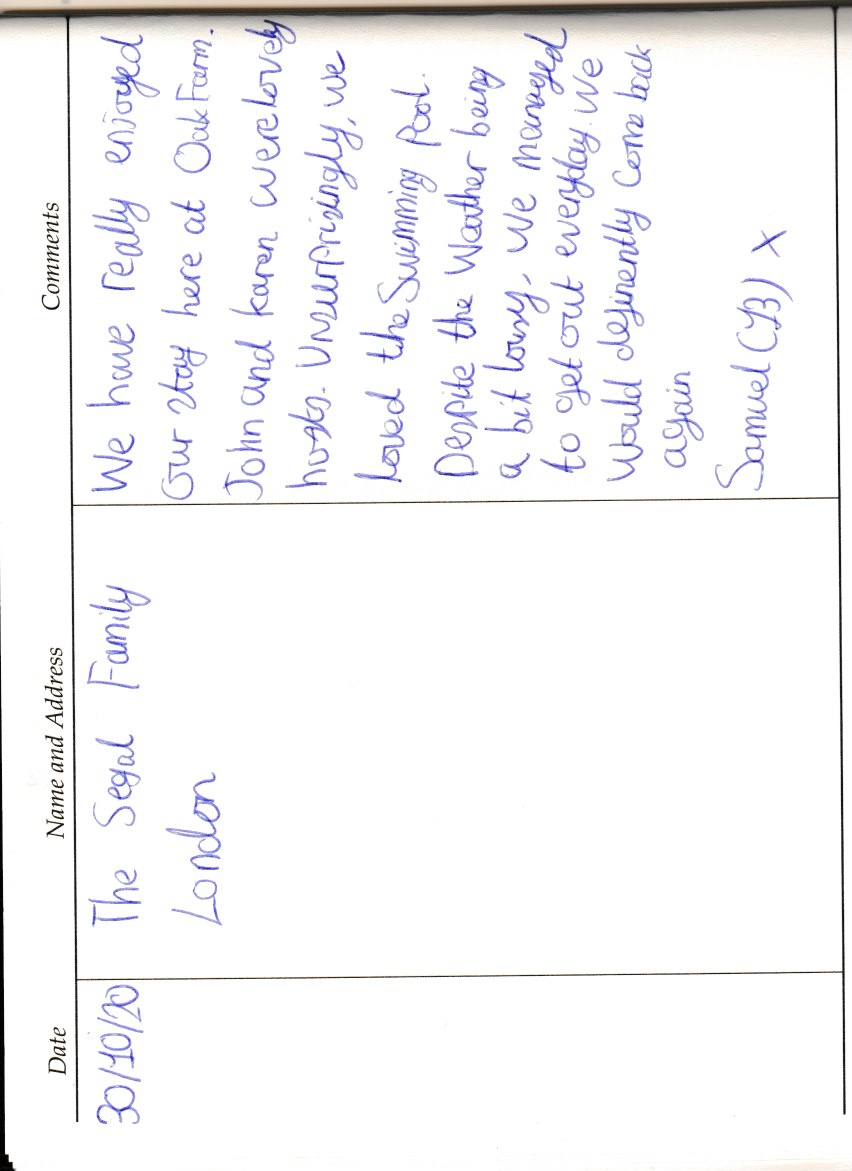 Date Name and Address Comments
30/10/20
The Segal Family
London
We have really enjoyed
Our stay here at Oak Farm.
John and karen were lovely
hosts. Unsurprisingly, we
loved the Swimming Pool.
Despite the Weather being
a bit lousy, we managed
to get out everyday. We
Would definently come back
again
Samuel (13) X